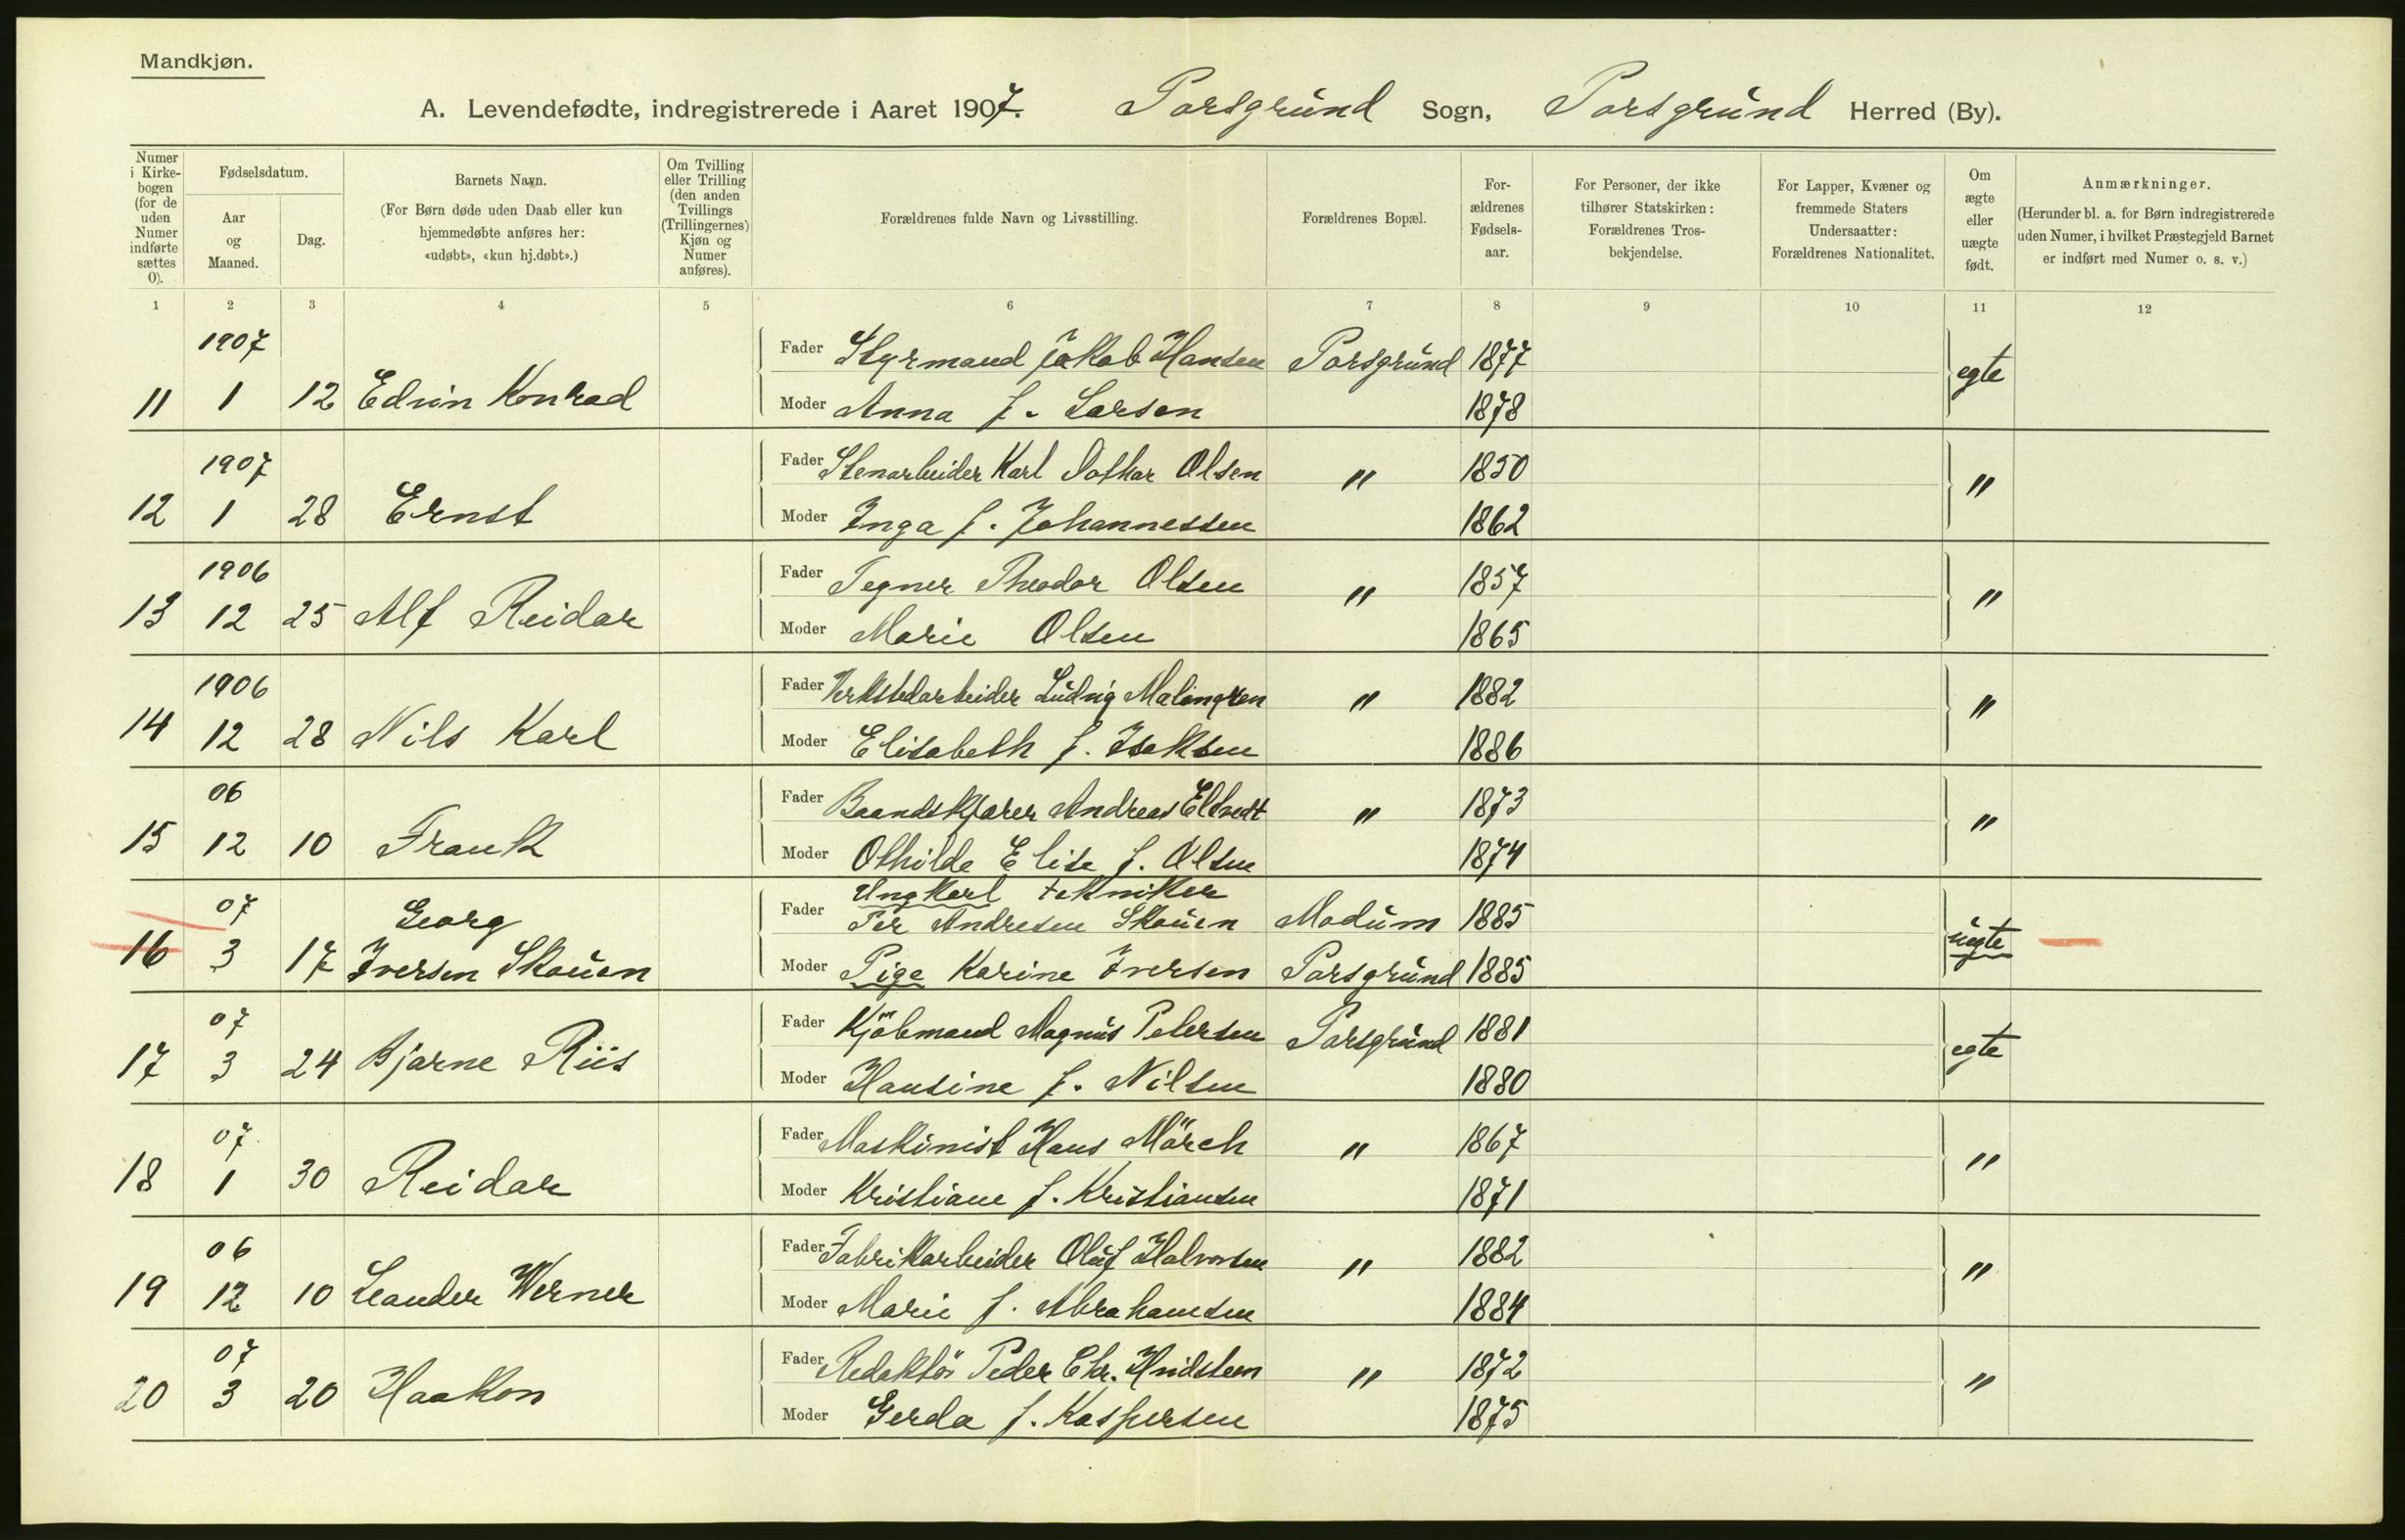 Mandkjøn.
A. Levendefødte, indregistrerede i Aaret 1907. Porsgrund Sogn, Porsgrund Herred (By).
Numer i Kirkebogen (for de uden Numer indførte sættes 0).
Fødselsdatum.
Aar og Maaned.
Dag.
Barnets Navn.
(For Børn døde uden Daab eller kun hjemmedøbte anføres her: «udøbt», «kun hj.døbt».)
Om Tvilling eller Trilling (den anden Tvillings (Trillingernes) Kjøn og Numer anføres).
Forældrenes fulde Navn og Livsstilling.
Forældrenes Bopæl.
Forældrenes Fødselsaar.
For Personer, der ikke tilhører Statskirken: Forældrenes Trosbekjendelse.
For Lapper, Kvæner og fremmede Staters Undersaatter: Forældrenes Nationalitet.
Om ægte eller uægte født.
Anmærkninger.
(Herunder bl. a. for Børn indregistrerede uden Numer, i hvilket Præstegjeld Barnet er indført med Numer o. s. v.)
1 2 3 4 5 6 7 8 9 10 11 12
1907
Fader Styrmand Jakob Hansen Porsgrund 1877 egte
11 1 12 Edvin Konrad
Moder Anna f. Larsen 1878
1907
Fader Stenarbeider Karl Olsen " 1850 "
12 1 28 Ernst
Moder Inga f. Johannessen 1862
1906
Fader Tegner Theodor Olsen " 1857 "
13 12 25 Alf Reidar
Moder Marie Olsen 1865
1906
Fader Verkstedarbeider Ludvig " 1882 "
14 12 28 Nils Karl
Moder Elisabeth f. Isaksen 1886
06
Fader Baandskjærer Andreas " 1873 "
15 12 10 Frank
Moder Othilde Elise f. Olsen 1874
07
Ungkarl tekniker
Fader Per Andresen Skouen Modum 1885 uegte
16 3 17 Georg
Iversen Skouen
Moder Pige Karine Iversen Porsgrund 1885
07
Fader Kjöbmand Magnus Petersen Porsgrund 1881 egte
17 3 24 Bjarne Riis
Moder Hansine f. Nilsen 1880
07
Fader Maskinist Hans Mörch " 1867 "
18 1 30 Reidar
Moder Kristiane f. Kristiansen 1871
06
Fader Fabrikarbeider Oluf Halvorsen " 1882 "
19 12 10 Leander Werner
Moder Marie f. Abrahamsen 1884
07
Fader Redaktör Peder Chr. Hvidsteen " 1872 "
20 3 20 Haakon
Moder Gerda f. Kaspersen 1875